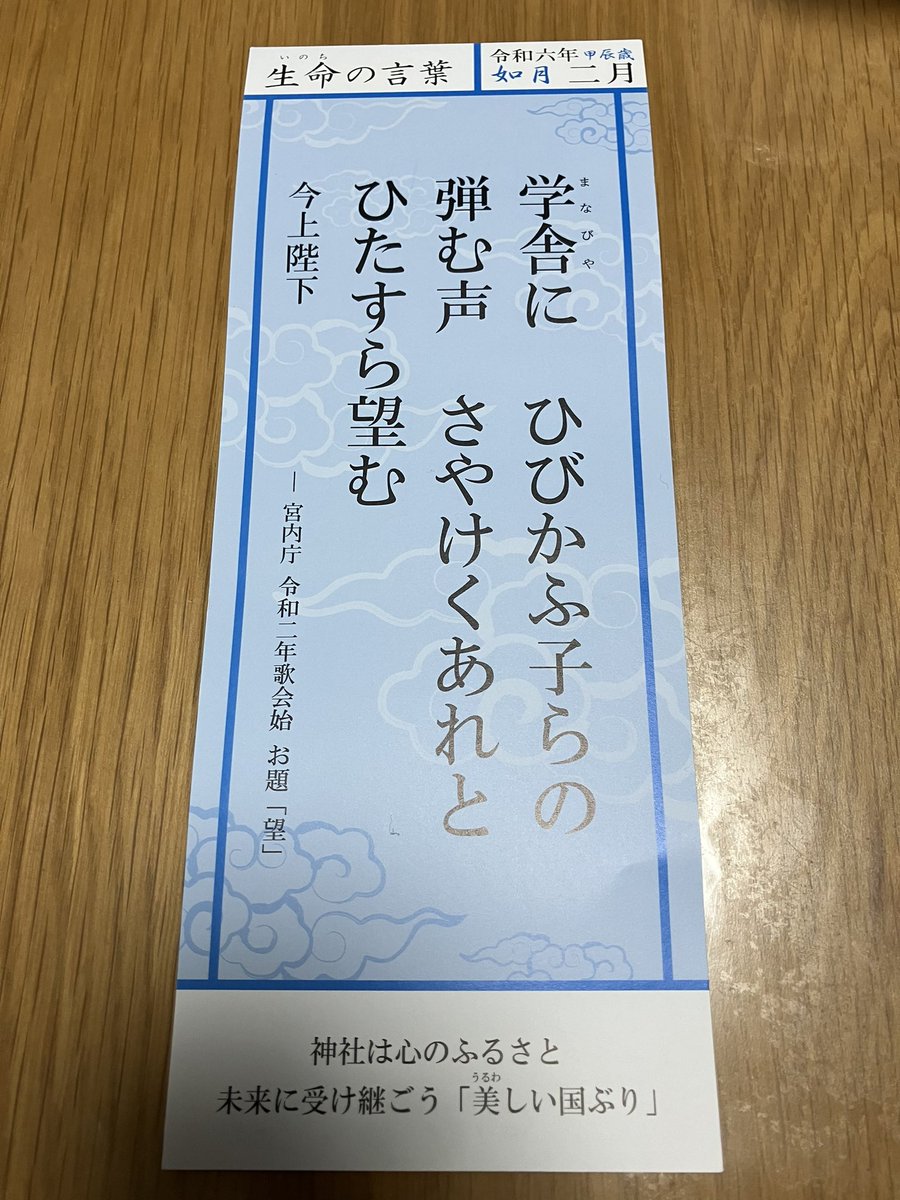 いのち
生命の言葉
令和六年 甲辰歳
如月 二月
まなびや
学舎に ひびかふ子らの
弾む声 さやけくあれと
ひたすら望む
今上陛下
― 宮内庁 令和二年歌会始 お題「望」
神社は心のふるさと
うるわ
未来に受け継ごう「美しい国ぶり」